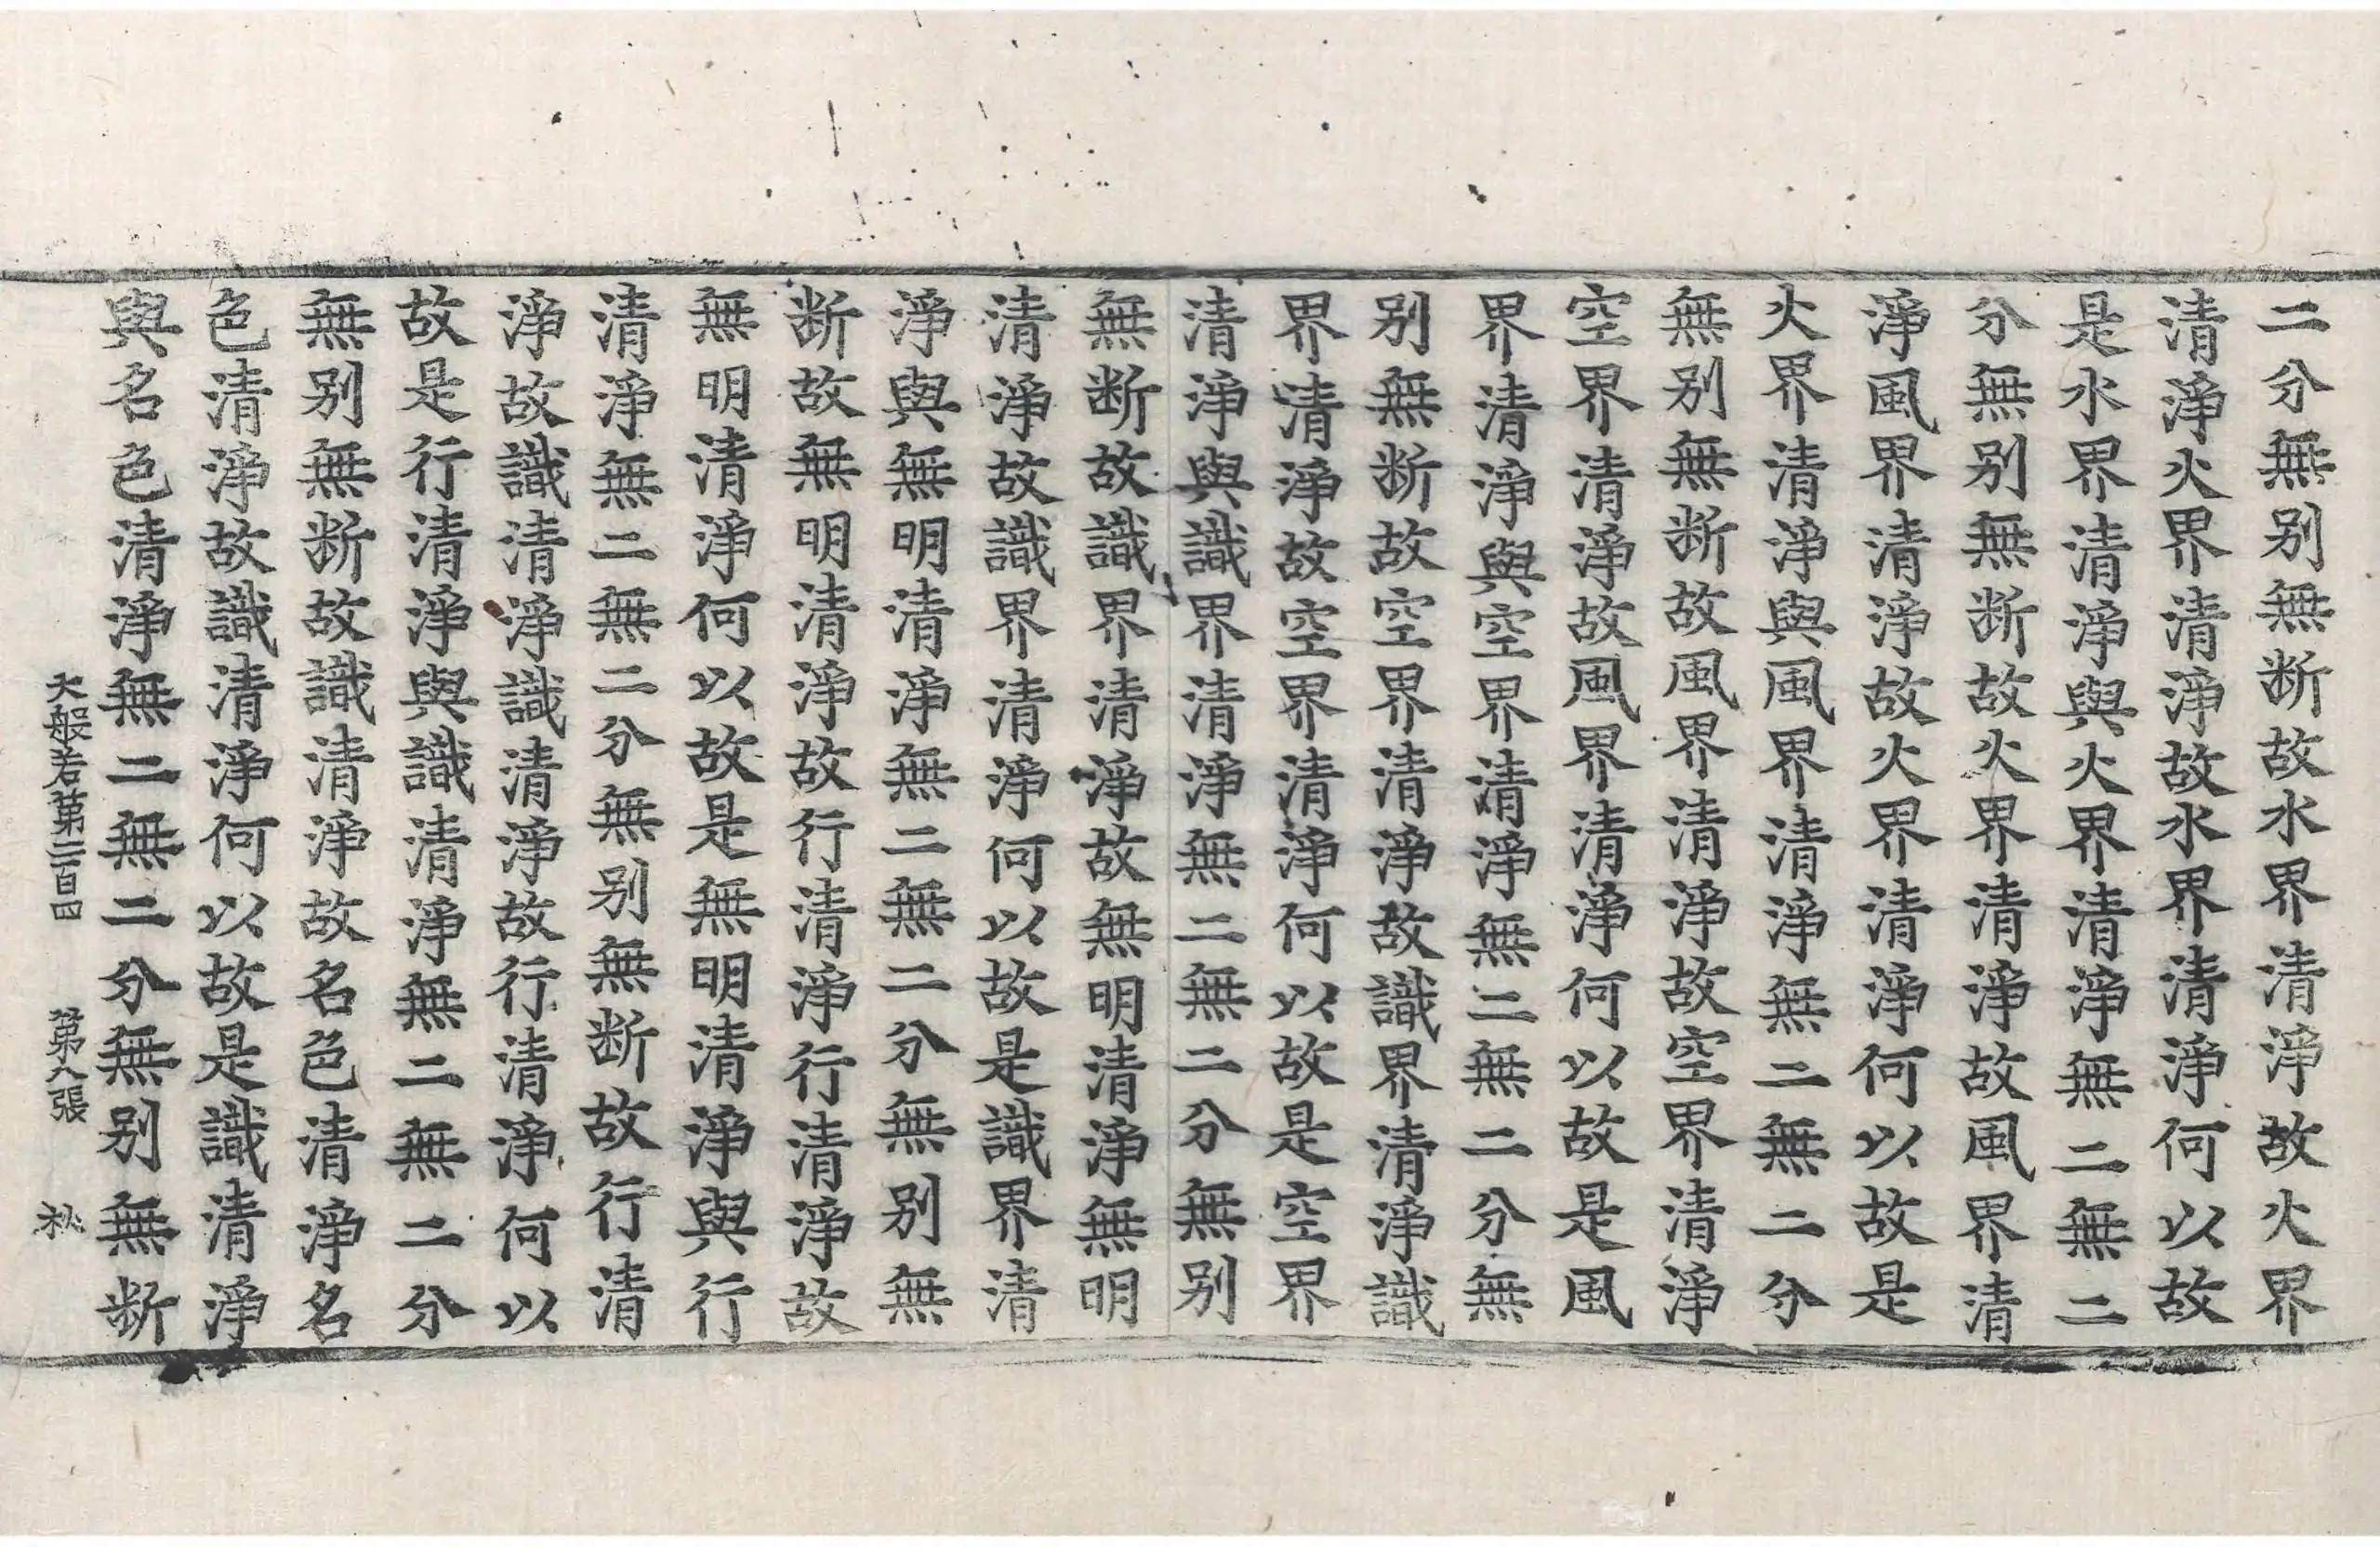 二分無別無断故水界清淨故火界
清淨火界清淨故水界清淨何以故
是水界清淨與火界清淨無二無二
分無別無断故火界清淨故風界清
淨風界清淨故火界清淨何以故是
火界清淨與風界清淨無二無二分
無別無断故風界清淨故空界清淨
空界清淨故風界清淨何以故是風
界清淨與空界清淨無二無二分無
別無断故空界清淨故識界清淨識
界清淨故空界清淨何以故是空界
清淨與識界清淨無二無二分無別
無断故識界清淨故無明清淨無明
清淨故識界清淨何以故是識界清
淨與無明清淨無二無二分無別無
断故無明清淨故行清淨行清淨故
無明清淨何以故是無明清淨與行
清淨無二無二分無別無断故行清
淨故識清淨識清淨故行清淨何以
故是行清淨與識清淨無二無二分
無別無断故識清淨故名色清淨名
色清淨故識清淨何以故是識清淨
與名色清淨無二無二分無別無断
大般若第二百四　第八張　松